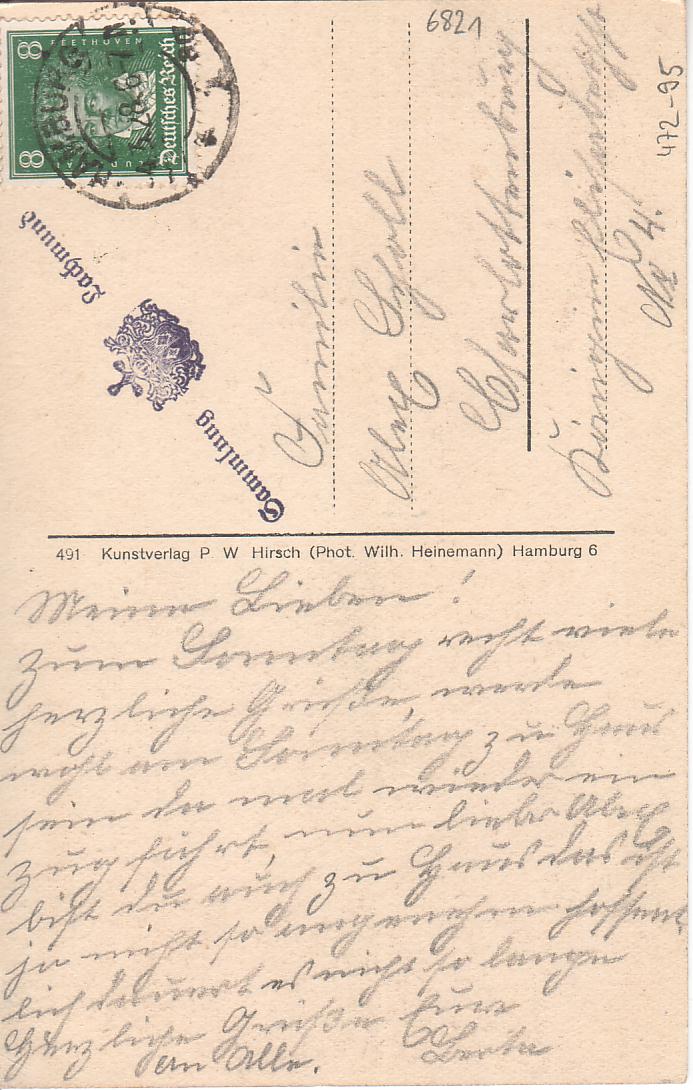 6821
472-95
8 BEETHOVEN 8
Deutsches Reich
HAMBURG
Sammlung
Lachmund
Familie
Alex Scholl
Charlottenburg
Königin Elisabethstr
No 4.
491 Kunstverlag P. W. Hirsch (Phot. Wilh. Heinemann) Hamburg 6
Meine Lieben!
Zum Sonntag recht viele
herzliche Grüße, werde
wohl am Sonntag zu Haus
sein da mal wieder ein
Zug fährt, nun lieber Alex
bist du auch zu Haus das ist
ja nicht so angenehm hoffent
lich dauert es nicht so lange
Herzliche Grüße Eure
an Alle.